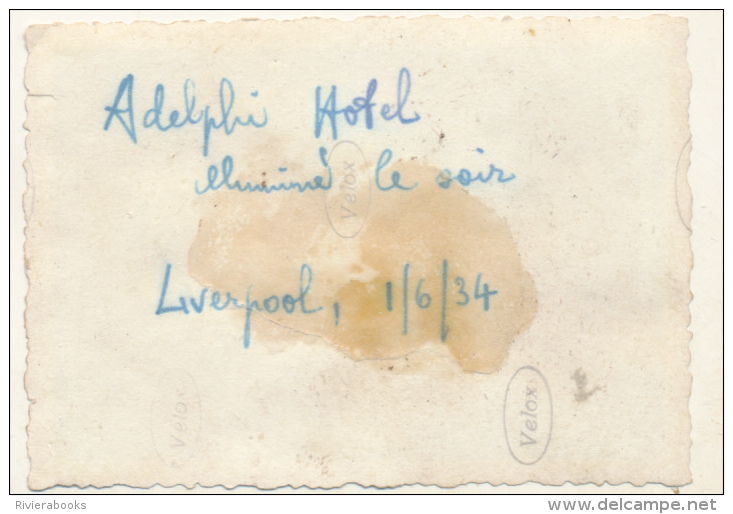 Adelphi Hotel
illuminé le soir
Velox
Liverpool, 1/6/34
Velox
Velox
Rivierabooks
www.delcampe.net